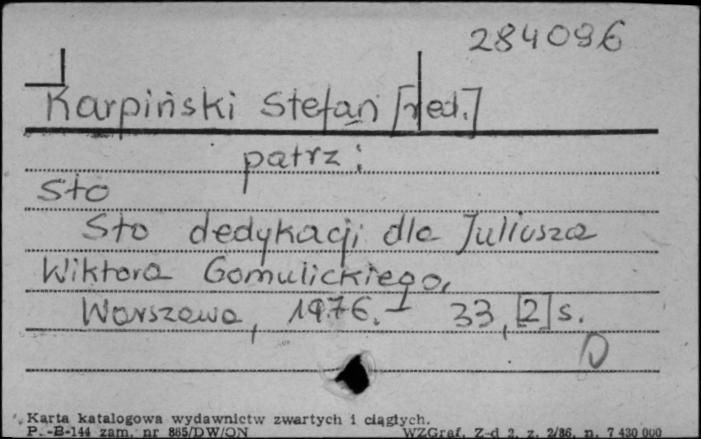 284096
Karpiński Stefan [red.]
patrz:
Sto
Sto dedykacji dla Juliusza
Wiktora Gomulickiego,
Warszawa, 1976. – 33, [2] s.
D
Karta katalogowa wydawnictw zwartych i ciągłych.
P.-B-144 zam. nr 885/DW/ON WZGraf. Z-d 2, z. 2/86, n. 7 430 000